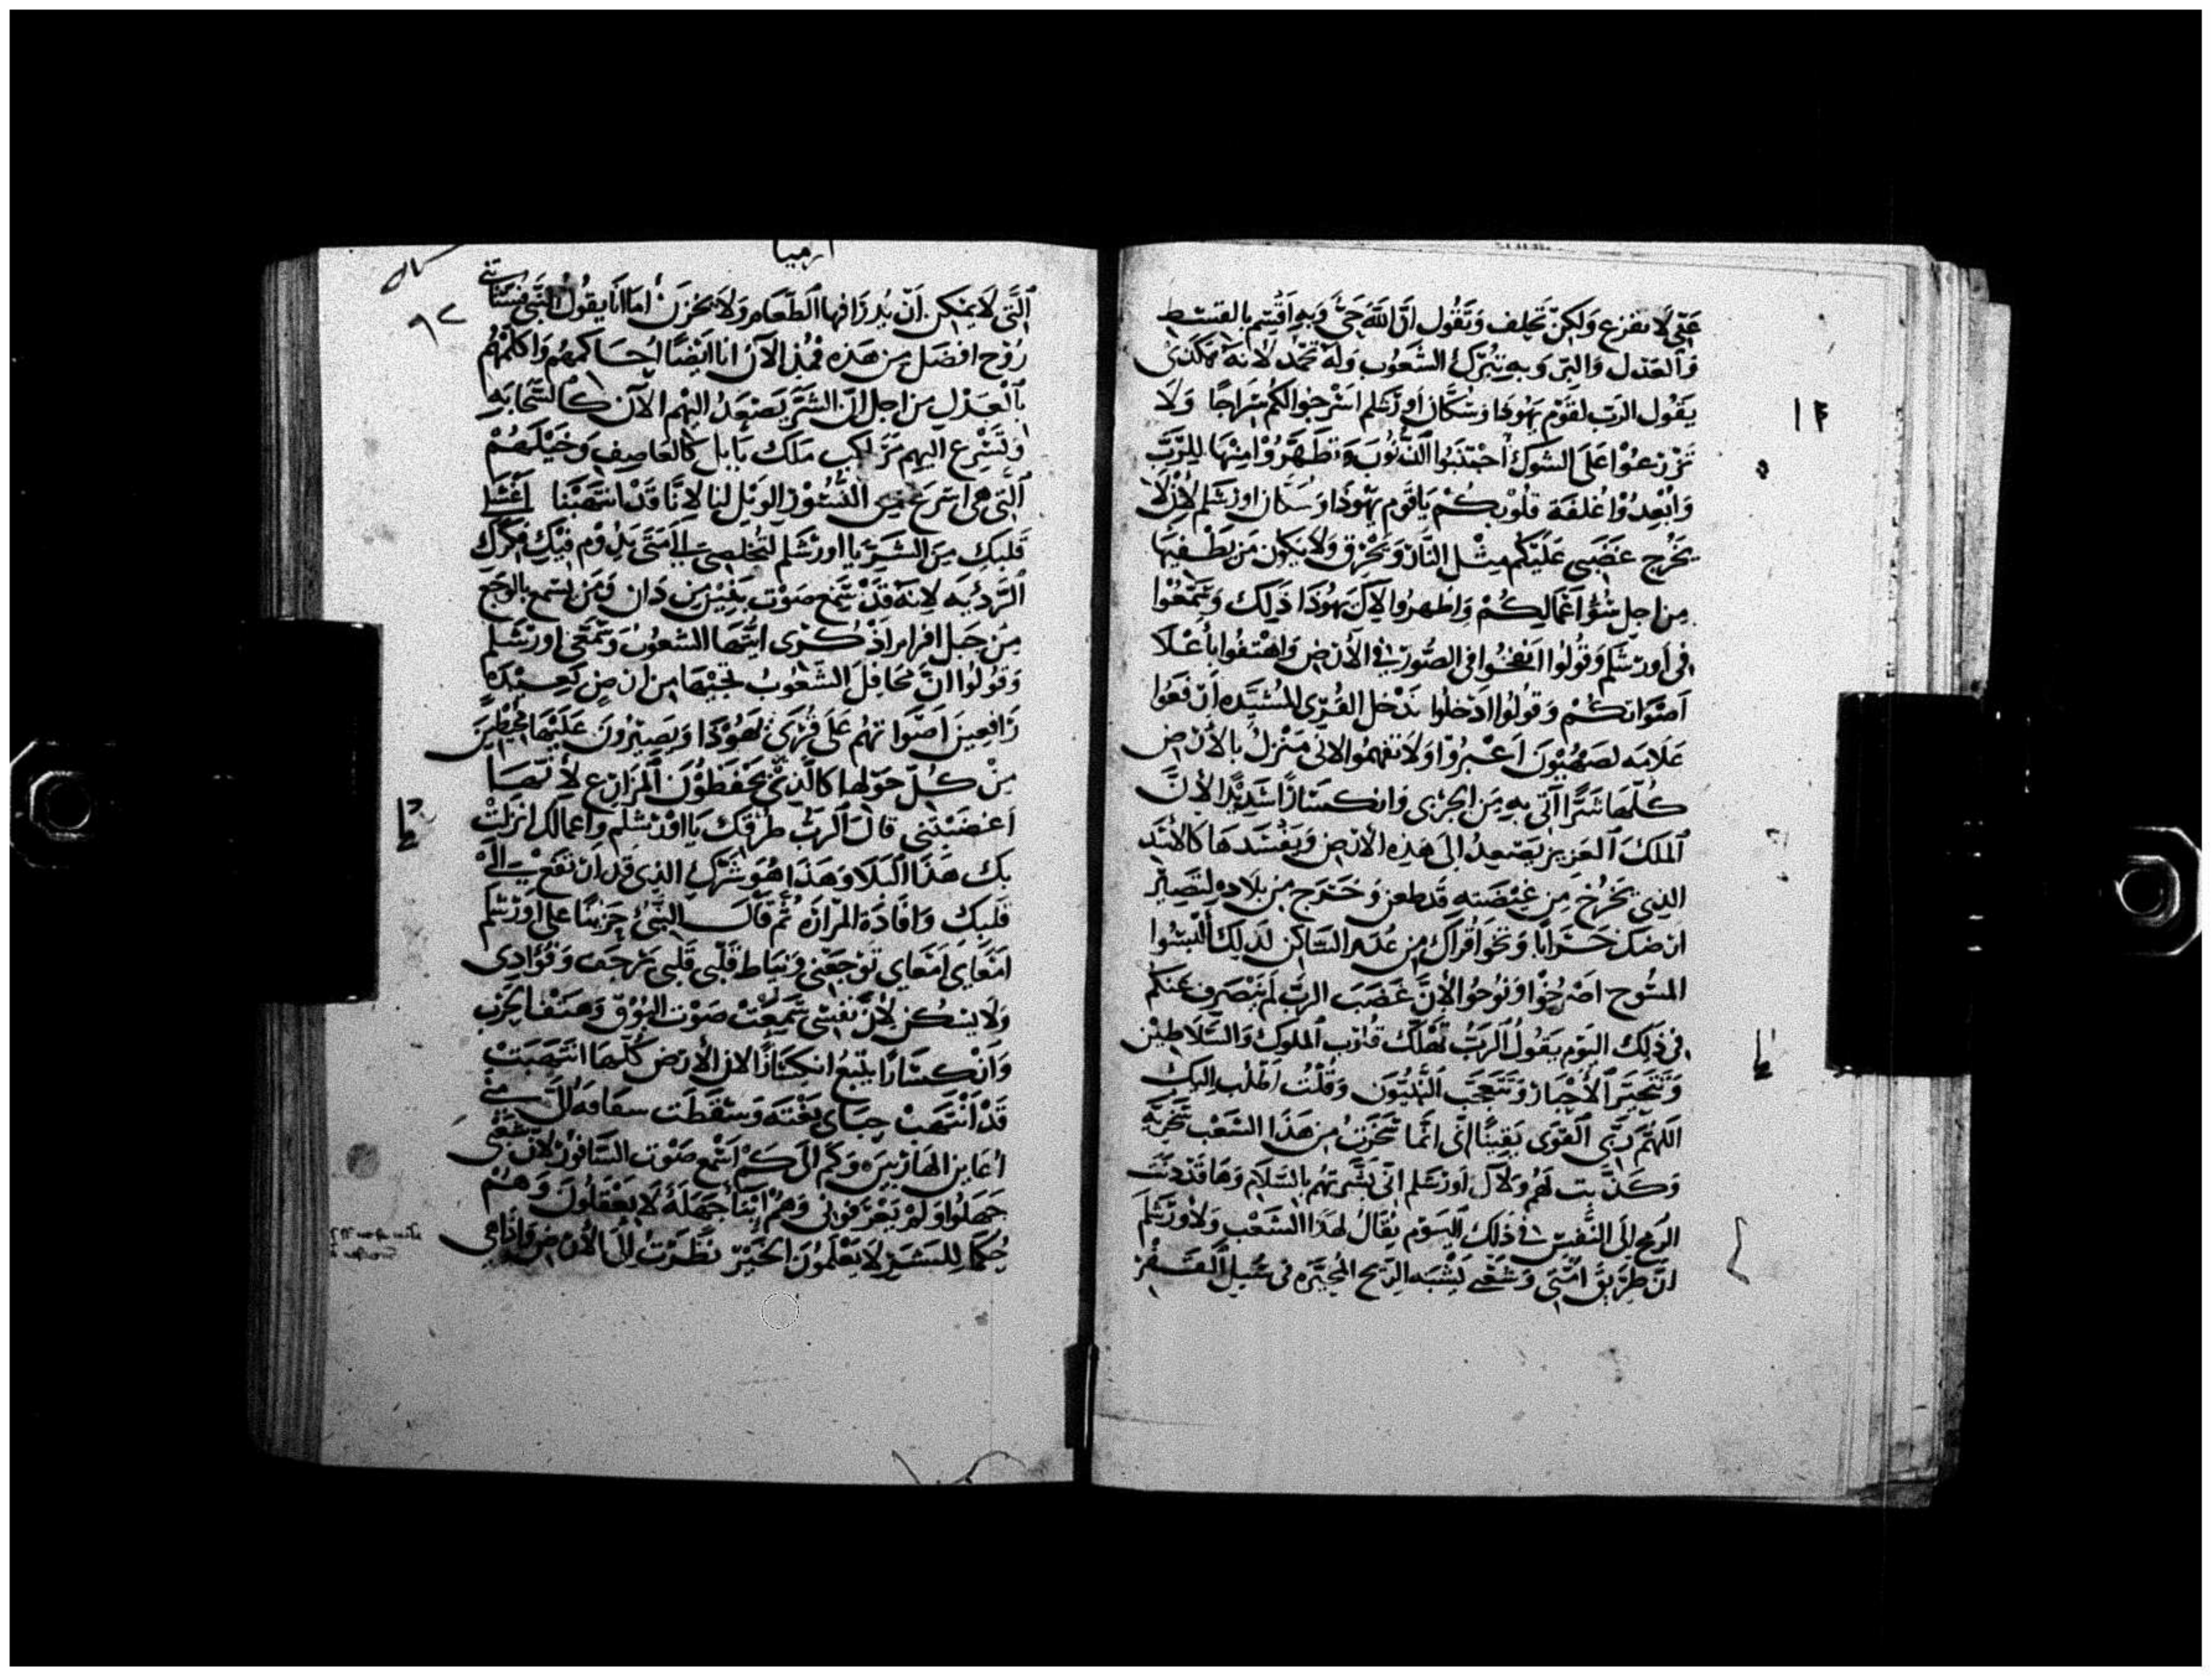 عني لا تفزع ولكن تحلف وتقول ان الله حيٌّ وبه اقسم بالقسط
والعدل والبر وبه يتبرك الشعوب وله تحمد لانه هكذى
يقول الرب لقوم يهودا وسكان اورشلم اسرجوا لكم سراجًا ولا
تزرعوا على الشوك اجتنبوا الذنوب وتطهروا منها للرب
وابعدوا غلفة قلوبكم ياقوم يهودا وسكان اورشلم لان لا
يخرج غضبي عليكم مثل النار ويحرق ولا يكون من يطفيها
من اجل سؤ اعمالكم واظهروا لال يهودا ذلك وسمعوا
في اورشلم وقولوا انفخوا في الصور في الأرض واهتفوا بأعلا
اصواتكم وقولوا ادخلوا ندخل القرى المشيده ارفعوا
علامه لصهيون اعبروا ولا تفهموا لاني منزل بالأرض
كلها شرًا اتي به من الجربى وانكسارًا شديدًا لأن
الملك العزيز يصعد الى هذه الأرض ويفسدها كالأسد
الذي يخرج من غيضته قد طعن وخرج من بلاده ليصير
ارضك خرابًا وتخوا قراك من عدم الساكن لذلك ألبسوا
المسوح اصرخوا ونوحوا لأن غضب الرب لم ينصرف عنكم
في ذلك اليوم يقول الرب تهلك قلوب الملوك والسلاطين
وتتحير الأحبار وتتعجب النبيون وقلت اطلب اليك
اللهم ربي القوى يقينًا اني انما تحزنت من هذا الشعب تحزنه
وكذبت لهم ولال اورشلم اني بشرتهم بالسلام وها قد دنت
الرمح إلى النفس في ذلك اليوم يقال لهذا الشعب ولاورشلم
ان طريق امتي وشعبي يشبه الريح المحيره في سبيل القفر
ارميا
٩٢
التي لا يمكن ان يذرا فيها الطعام ولا تخزن أما انا يقول النبي فستاتيني
روح افضل من هذه فمنذ الآن انا ايضًا احاكمهم واكلمهم
بالعدل من اجل ان الشر يصعد اليهم الآن كالسحابه
وتسرع اليهم مراكب ملك بابل كالعاصف وخيلهم
التي هي اسرع من النسور الويل لنا لانا قد انتهبنا اغسلي
قلبك من الشر يا اورشلم لتخلصي الى متى يدوم فيك فكرك
الرديه لانه قد سمع صوت بغير من دان ومن يسمع بالوجع
من جبل افرام اذكرى ايتها الشعوب وسمعي اورشلم
وقولوا ان محافل الشعوب تجيها من ارض بعيده
رافعين اصواتهم على قرى يهودا ويصيرون عليها محيطين
من كل حولها كالذين يحفظون المزارع لأنها
اغضبتني قال الرب طرقك يا اورشلم واعمالك انزلت
بك هذا البلا وهذا هو شرك الذي قد ارتفع الى
قلبك وافاده المراره ثم قال النبي حزينًا على اورشلم
امعاي امعاي توجعني ونياط قلبي قلبي يرجف وفؤادى
ولا يسكن لأن نفسي سمعت صوت البوق وهتف الحرب
وانكسارًا يتبع انكسارًا لان الأرض كلها انتهبت
قد انتهب خباى بغتة وسقطت سقافه الى متى
اعاين الهاربين وكم الى كم اسمع صوت السافور لان شعبي
جهلوا ولم يعرفوني وهم ابنًا جهلة لا يعقلون وهم
حكما للشر لا يعلمون الخير نظرت الى الأرض واذا هي